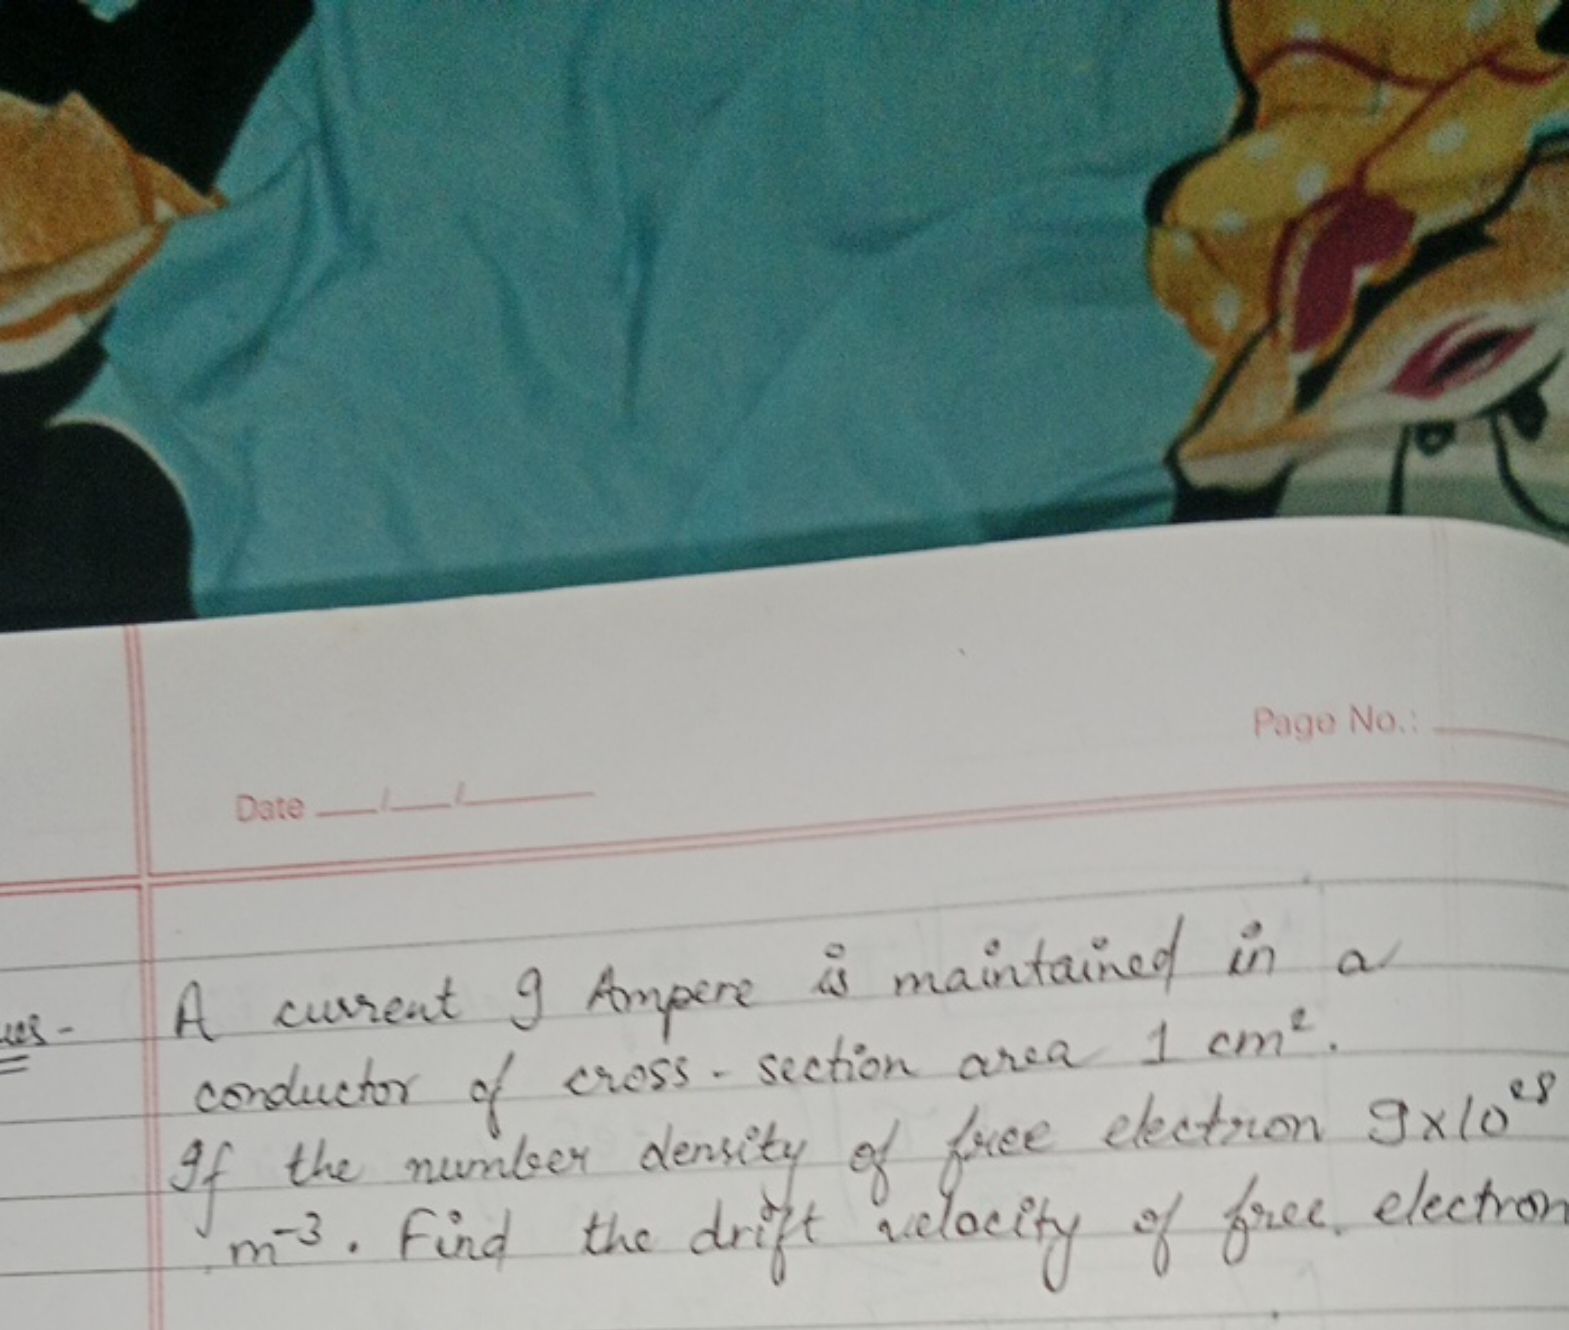 Page No.:
Date __/__/____
A current 9 Ampere is maintained in a
conductor of cross-section area 1 cm².
If the number density of free electron 9x10²⁸
m⁻³. Find the drift velocity of free electron